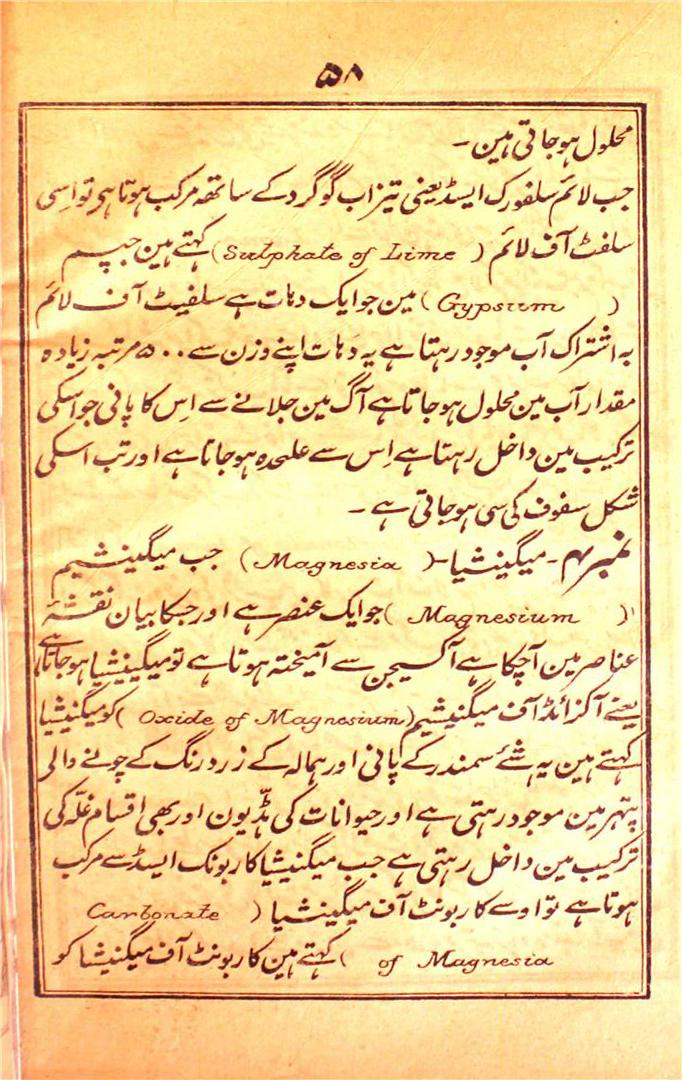 ۵۸
محلول ہوجاتی ہین ۔
جب لائم سلفورک ایسڈ یعنی تیزاب گوگرد کے ساتھ مرکب ہوتا ہی تو اِسی
سلفٹ آف لائم ( Sulphate of Lime ) کہتے ہین جپسم
( Gypsium ) مین جو ایک دہات ہے سلفیٹ آف لائم
بہ اشتراک آب موجود رہتا ہے یہ دہات اپنے وزن سے ۵۰۰ مرتبہ زیادہ
مقدار آب مین محلول ہوجاتا ہے آگ مین جلانے سے اِس کا پانی جو اسکی
ترکیب مین داخل رہتا ہے اِس سے علحدہ ہوجاتا ہے اور تب اسکی
شکل سفوف کی سی ہوجاتی ہے ۔
نمبر ۴ ۔ میگینشیا ۔ ( Magnesia ) جب میگینشیم
( Magnesium ) جو ایک عنصر ہے اور جسکا بیان نقشۂ
عناصر مین آچکا ہے آکسیجن سے آمیختہ ہوتا ہے تو میگینیشیا ہوجاتا ہے
یعنے آکزائڈ آف میگنیشیم ( Oxide of Magnesium ) کو میگنیشیا
کہتے ہین یہ شئے سمندر کے پانی اور ہمالہ کے زرد رنگ کے چونے والی
پتہر مین موجود رہتی ہے اور حیوانات کی ہڈیون اور بھی اقسام غلّہ کی
ترکیب مین داخل رہتی ہے جب میگنیشیا کاربونک ایسڈ سے مرکب
ہوتا ہے تو اوسے کاربونٹ آف میگینشیا ( Carbonate
of Magnesia ) کہتے ہین کاربونٹ آف میگنیشا کو